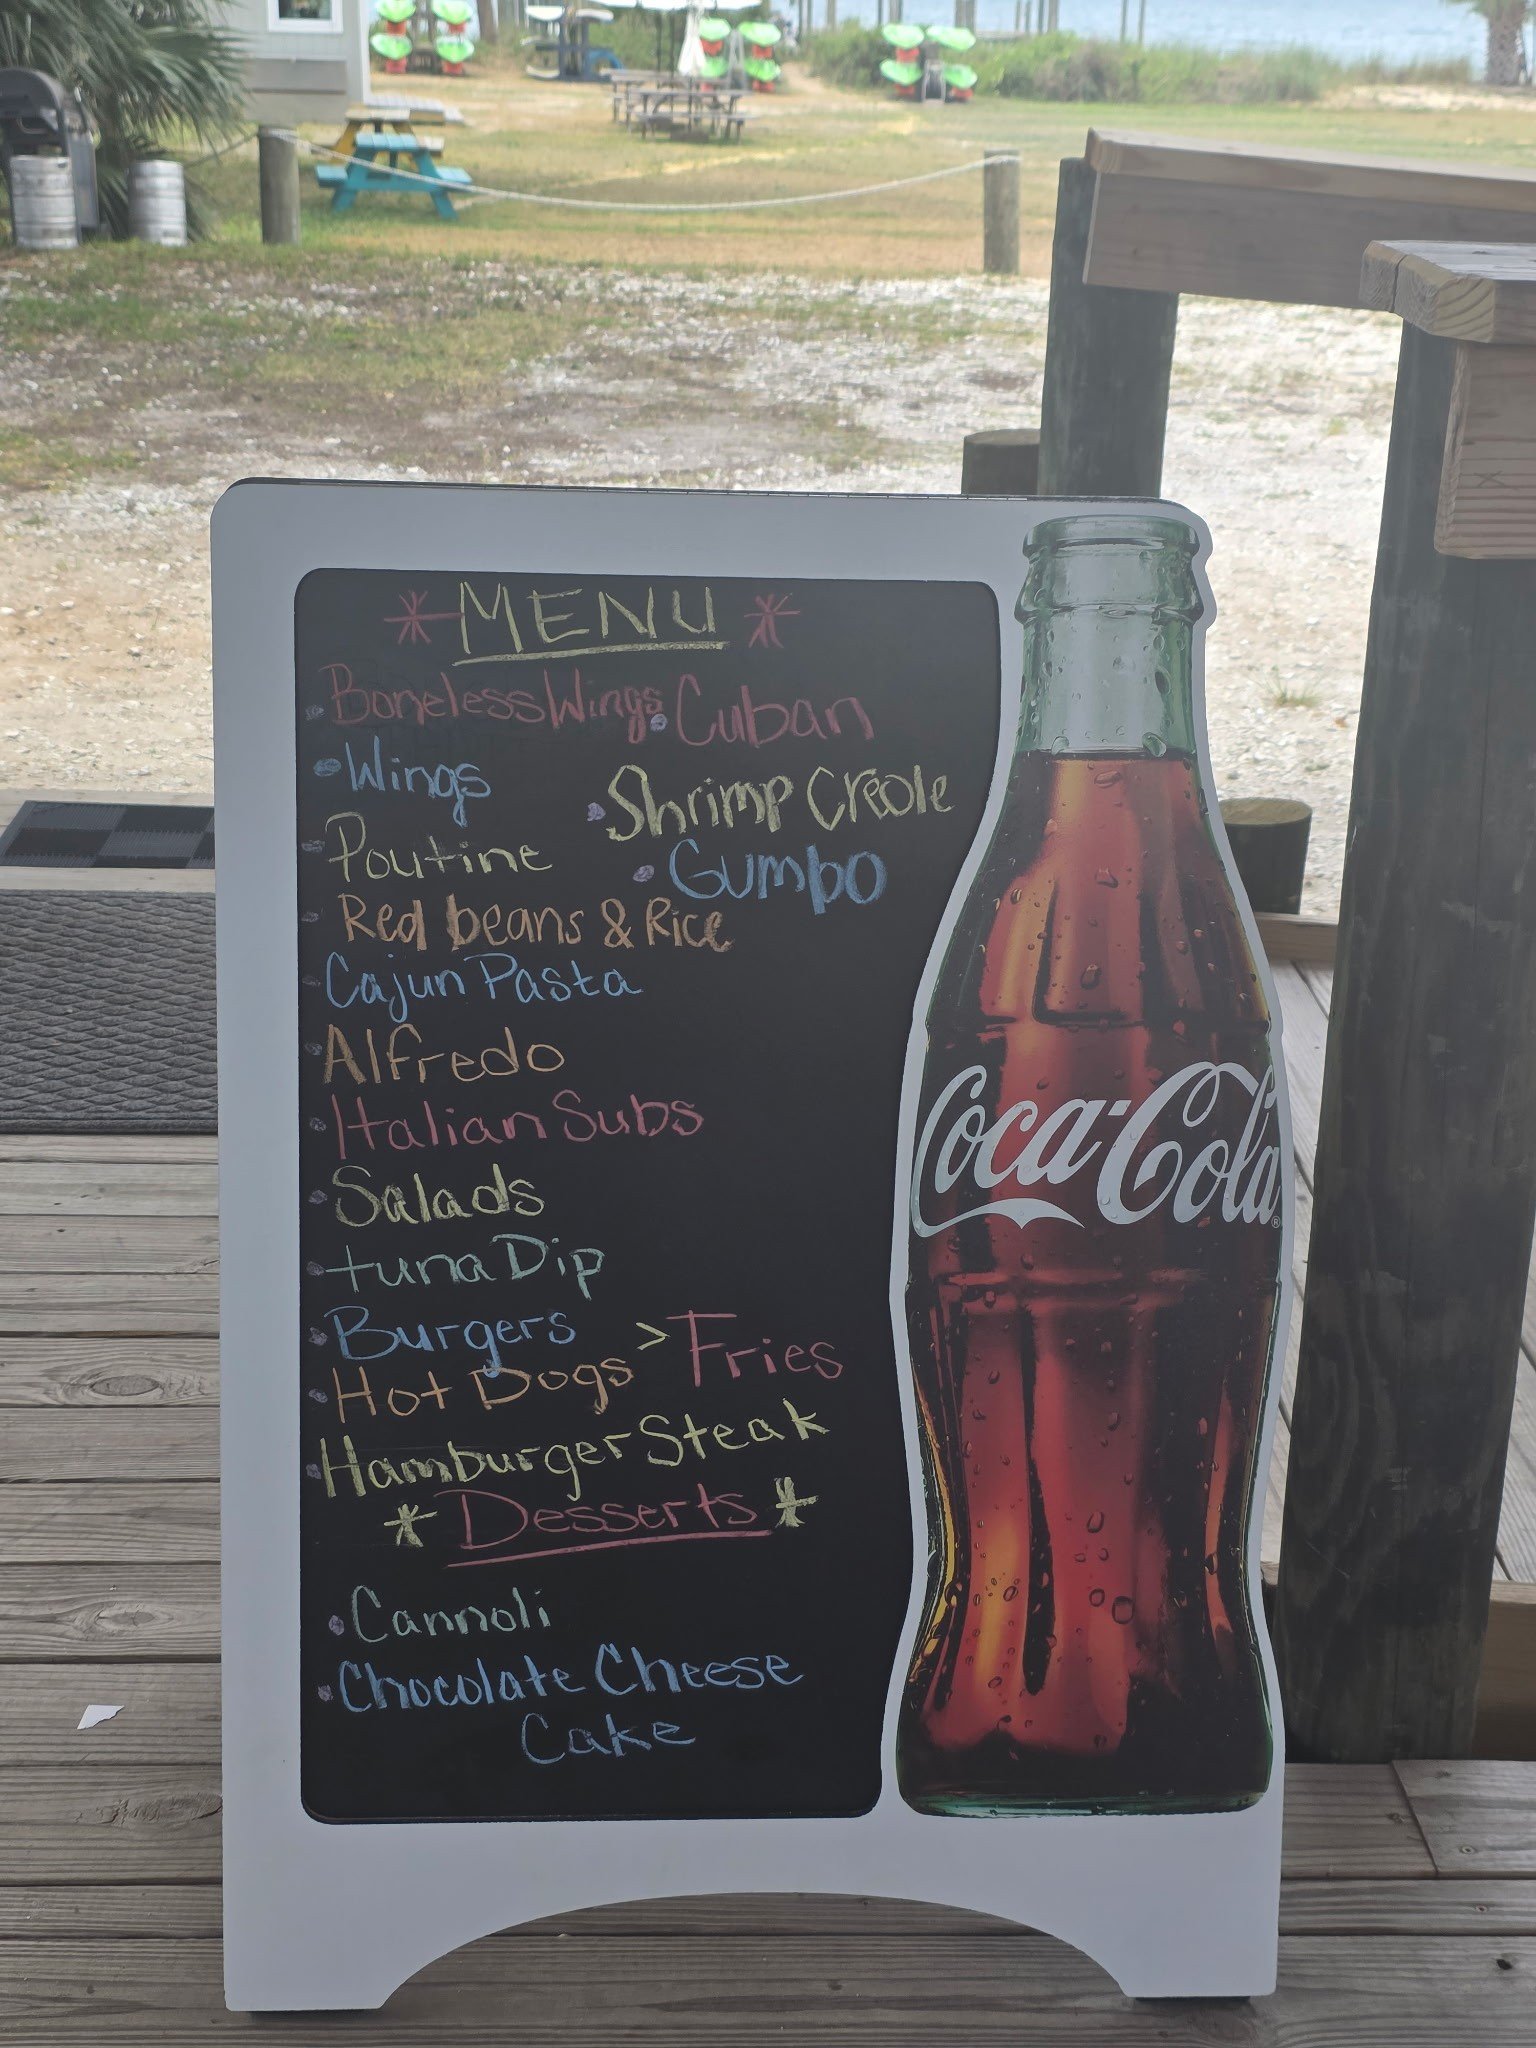 * MENU *
• Boneless Wings
• Cuban
• Wings
• Shrimp Creole
• Poutine
• Gumbo
• Red beans & Rice
• Cajun Pasta
• Alfredo
• Italian Subs
• Salads
• tuna Dip
• Burgers
• Hot Dogs > Fries
• Hamburger Steak
* Desserts *
• Cannoli
• Chocolate Cheese
Cake
Coca-Cola®